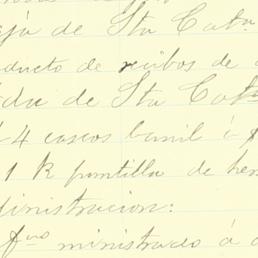 de Sta Cat
ducto de recibos de
de Sta Cata
4 cascos barril á
1 K puntilla de
ministracion:
ministrado á